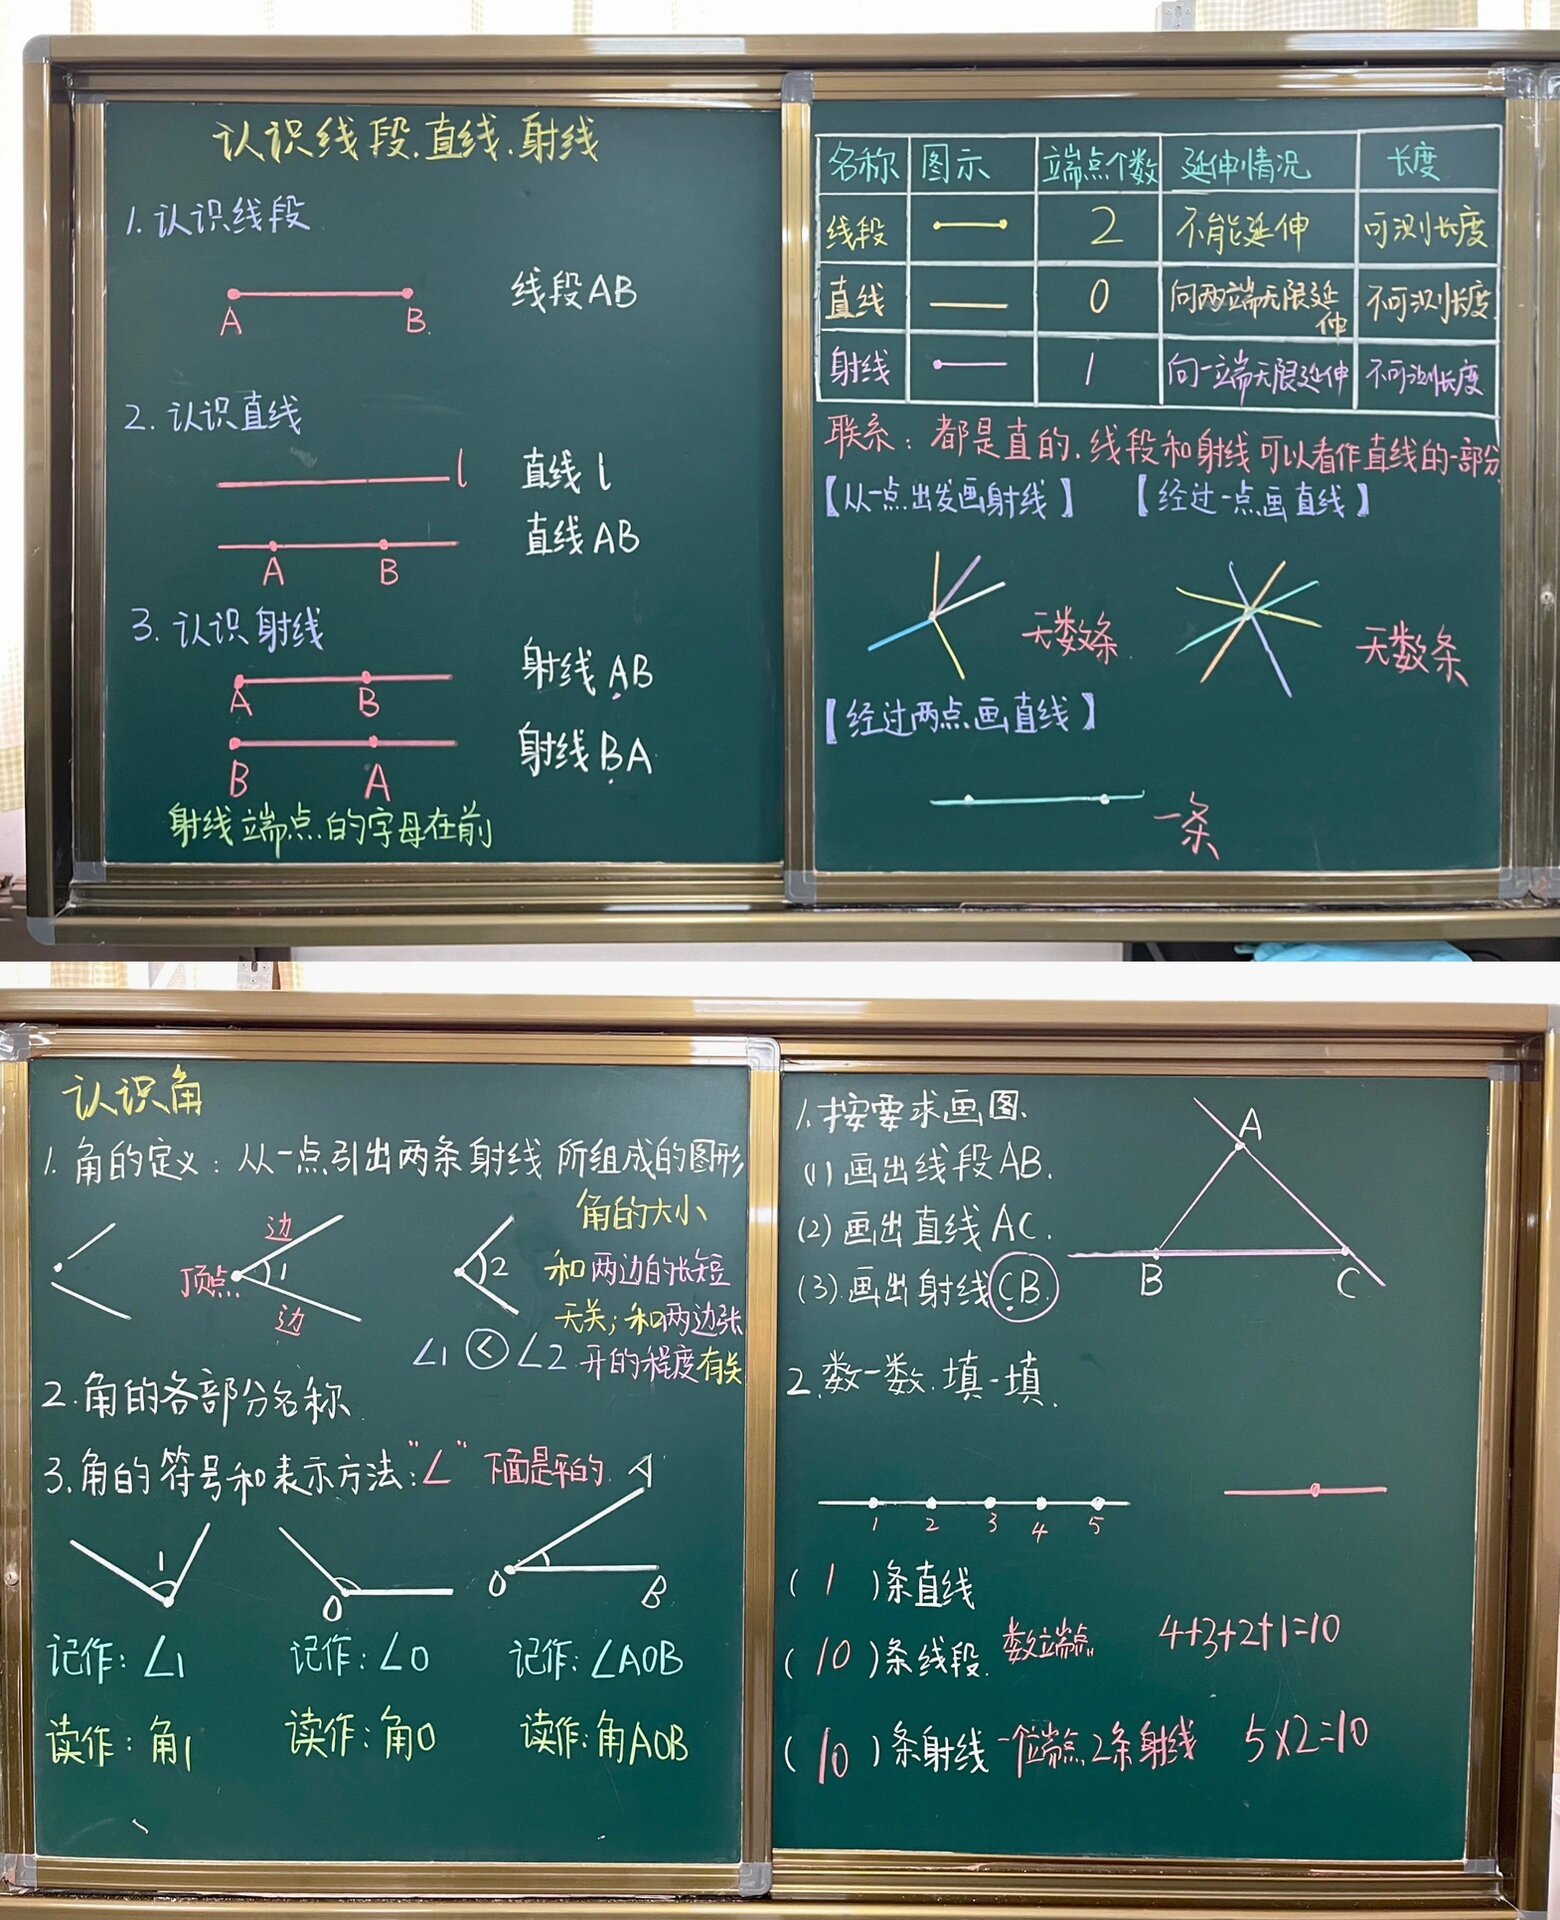 认识线段.直线.射线
1.认识线段
A B
线段AB
2.认识直线
l
直线l
A B
直线AB
3.认识射线
A B
射线AB
B A
射线BA
射线端点的字母在前
名称 图示 端点个数 延伸情况 长度
线段 2 不能延伸 可测长度
直线 0 向两端无限延伸 不可测长度
射线 1 向一端无限延伸 不可测长度
联系：都是直的.线段和射线可以看作直线的一部分
【从一点出发画射线】 【经过一点画直线】
无数条 无数条
【经过两点画直线】
一条
认识角
1.角的定义：从一点引出两条射线所组成的图形
顶点
边
边
1
2
角的大小
和两边的长短
无关；和两边张
开的程度有关
∠1 < ∠2
2.角的各部分名称
3.角的符号和表示方法："∠" 下面是平的
1
O
A
O B
记作：∠1 记作：∠O 记作：∠AOB
读作：角1 读作：角O 读作：角AOB
1.按要求画图.
(1)画出线段AB.
(2)画出直线AC.
(3)画出射线CB.
A
B C
2.数一数.填一填.
1 2 3 4 5
(1)条直线
(10)条线段. 数端点 4+3+2+1=10
(10)条射线 一个端点2条射线 5×2=10